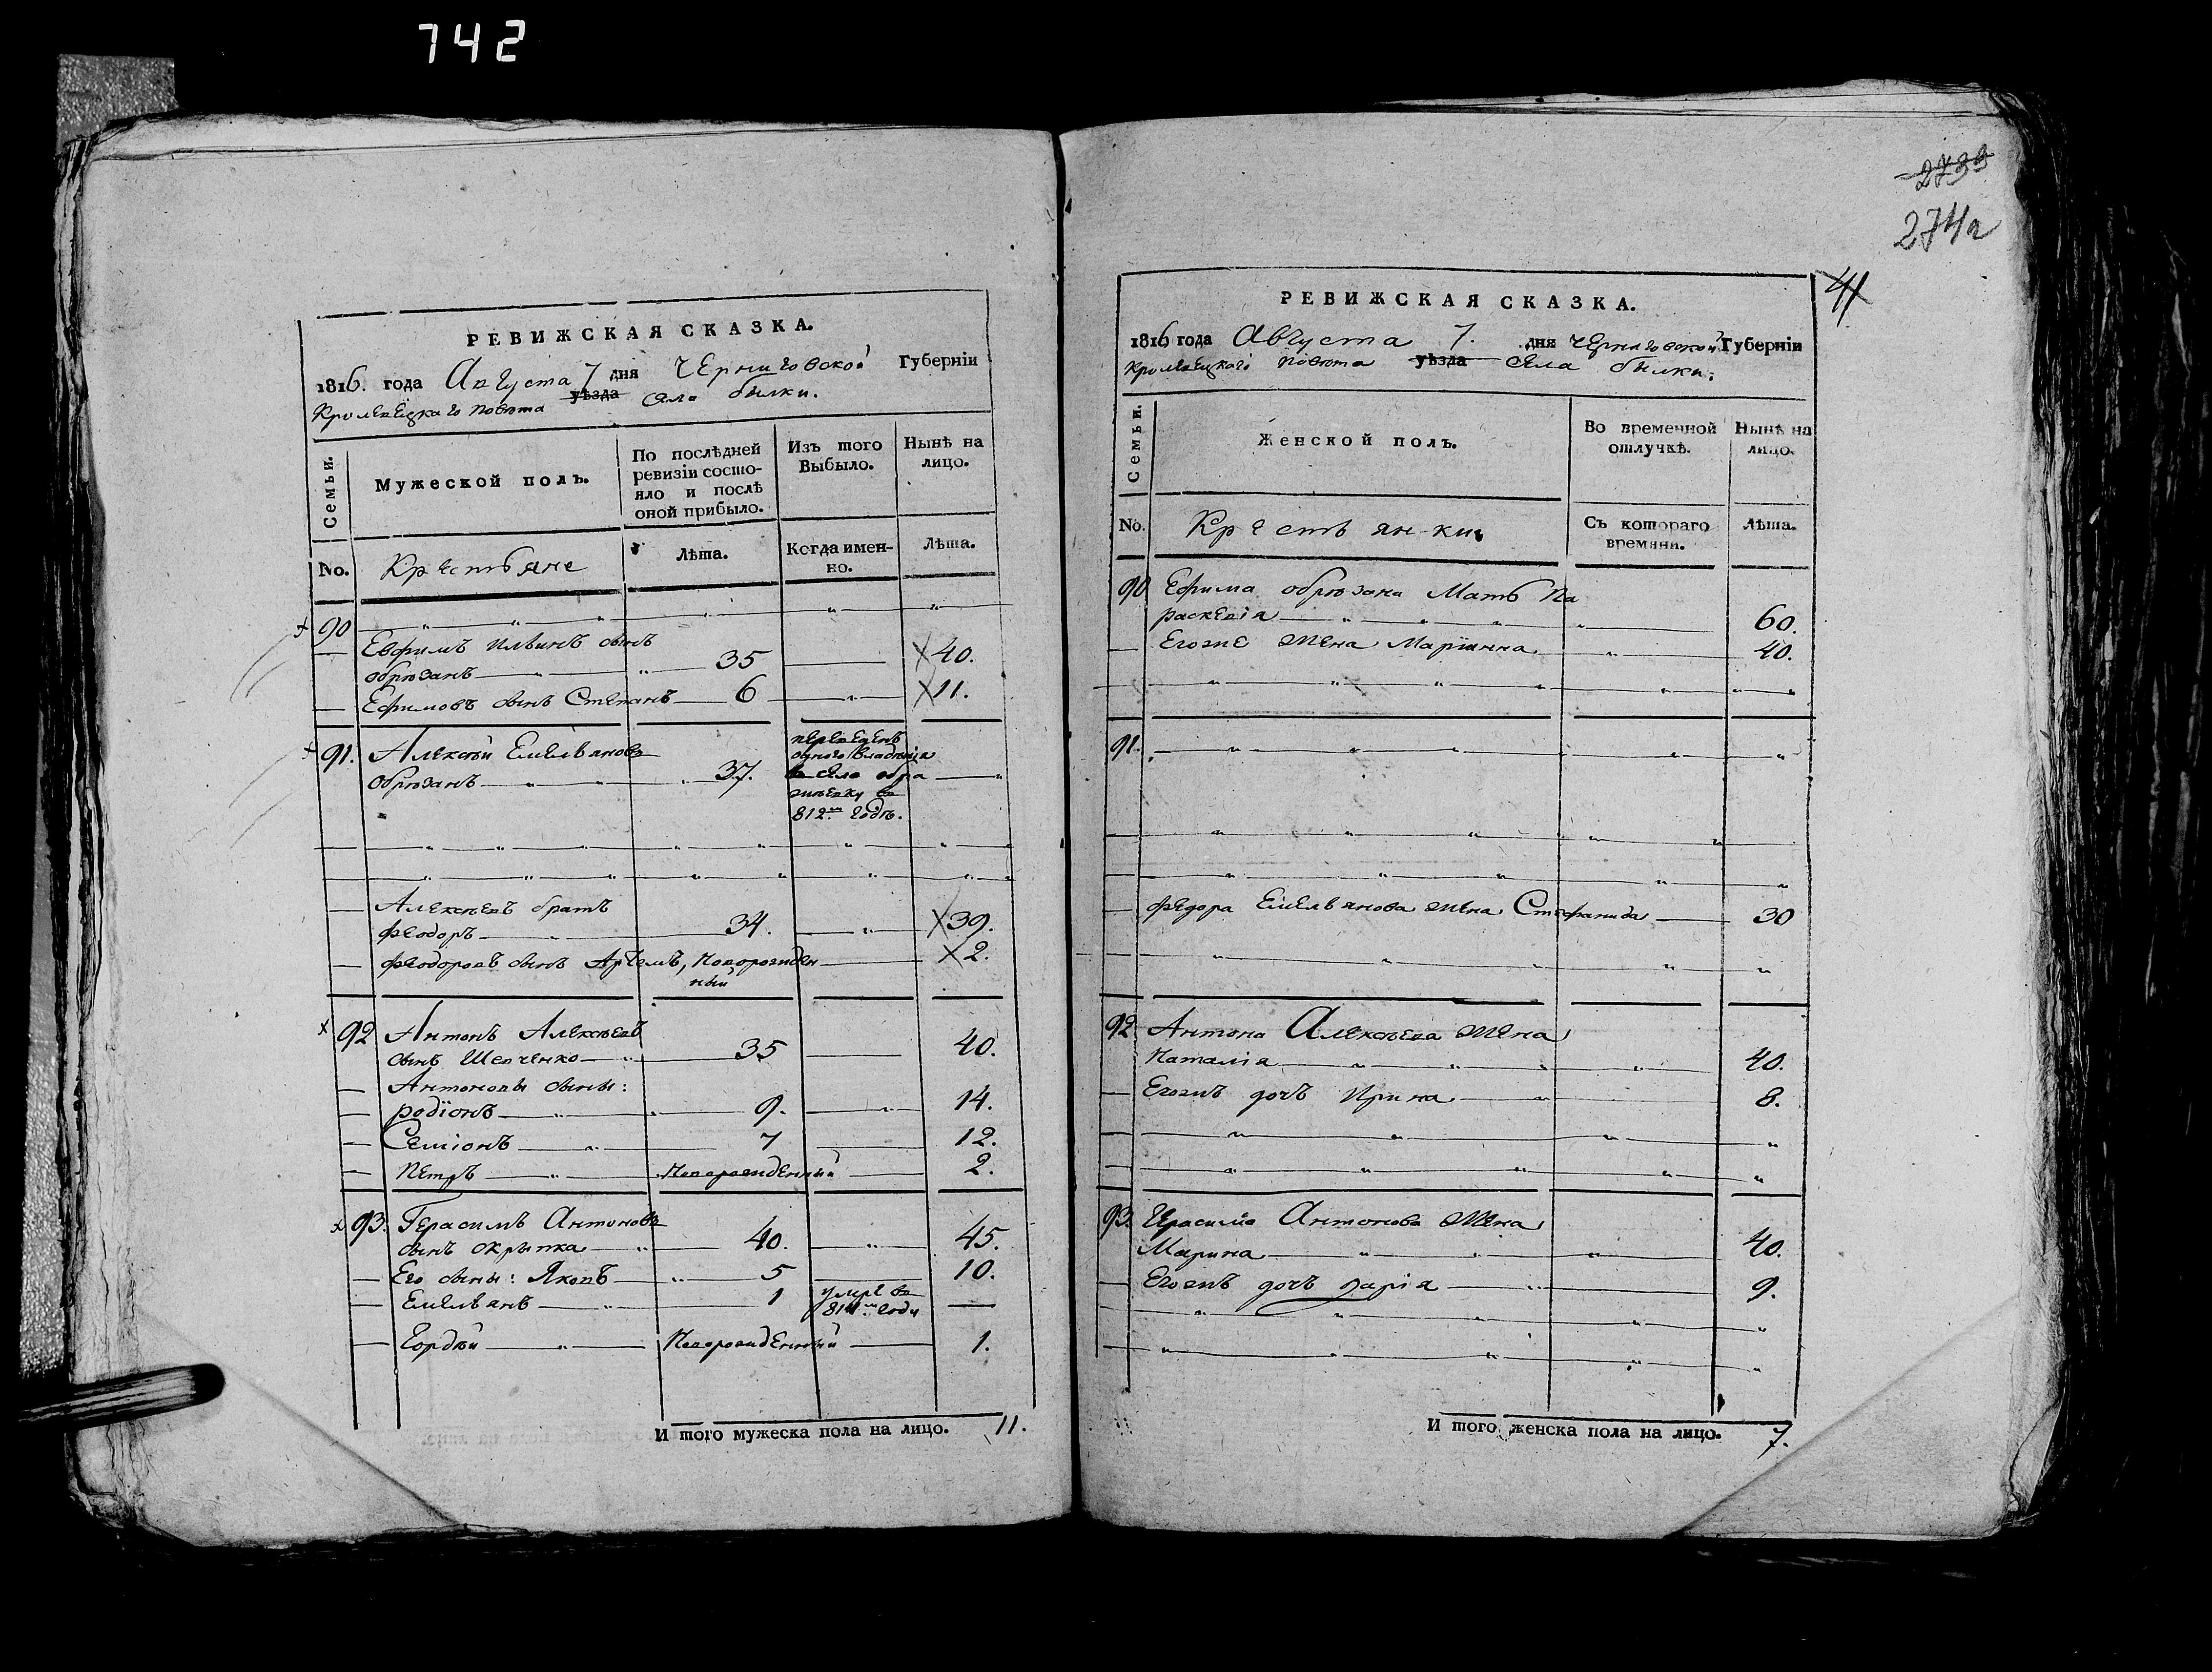 742
РЕВИЖСКАЯ СКАЗКА.
1816. года Августа 7 дня Черниговской Губерніи
Кролевецкаго повѣта уѣзда села былки.
Семьи.
Мужеской полъ.
По послѣдней ревизіи состо-
яло и послѣ
оной прибыло.
Изъ того
Выбыло.
Нынѣ на
лицо.
No.
Крестьяне
Лѣта.
Когда имен-
но.
Лѣта.
90
Евфимъ Ильинъ сынъ
обрѣзанъ 35 40.
Ефимовъ сынъ Степанъ 6 11.
91. Алексѣй Емельяновъ
обрѣзанъ 37.
переведенъ
одного владѣнія
в село обра
жиевку в
812м годѣ.
Алексѣевъ братъ
Феодоръ 34. 39.
Феодоровъ сынъ Артемъ, Новорожден
ный 2.
92 Антонъ Алексѣевъ
сынъ Шевченко 35 40.
Антоновы сыны:
родїонъ 9. 14.
Семіонъ 7 12.
Петръ Новорожденный 2.
93. Герасимъ Антоновъ
сынъ скрыпка 40. 45.
Его сыны: Яковъ 5 10.
Емельянъ 1 умре в
811м году
Гордѣй Новорожденный 1.
И того мужеска пола на лицо. 11.
2733
274а
41
РЕВИЖСКАЯ СКАЗКА.
1816 года Августа 7. дня Черниговской Губерніи
Кролевецкаго повѣта уѣзда села былки.
Семьи.
Женской полъ.
Во временной
отлучкѣ.
Нынѣ на
лицо.
No.
Крестьян-ки
Съ котораго
времяни.
Лѣта.
90 Ефима обрѣзана Мать Па
раскевія 60.
Егоже жена Маріянна 40.
91.
Федора Емельянова жена Стефанида 30
92 Антона Алексѣева жена
Наталія 40.
Егожъ дочъ Ирина 8.
93. Герасима Антонова жена
Марина 40.
Егожъ дочъ дарія 9.
И того женска пола на лицо. 7.